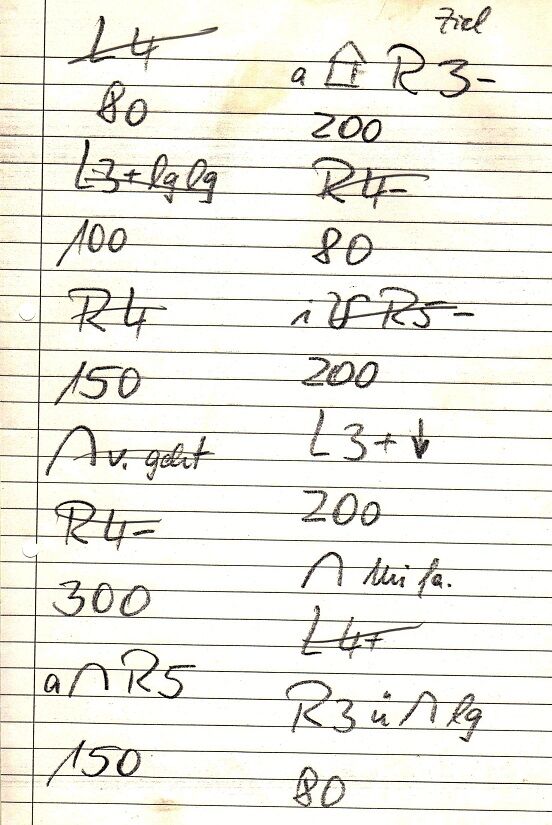 L4
80
L3+ lg lg
100
R4
150
∩ v. geht
R4-
300
a ∩ R5
150
Ziel
a R3-
200
R4-
80
R5-
200
L3+ ↓
200
∩
L4+
R3 ü ∩ lg
80